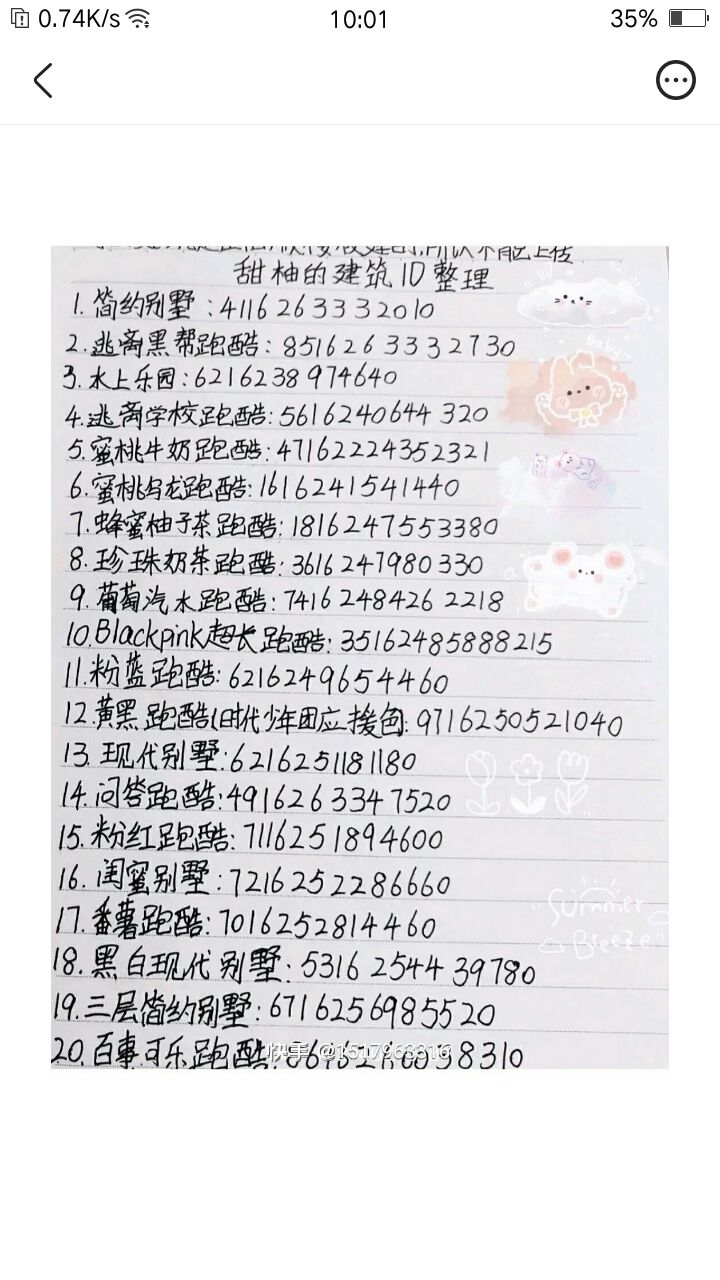 0.74K/s
10:01
35%
甜柚的建筑ID整理
1.简约别墅:4116263332010
2.逃离黑帮跑酷:8516263332730
3.水上乐园:6216238974640
4.逃离学校跑酷:5616240644320
5.蜜桃牛奶跑酷:47162224352321
6.蜜桃乌龙跑酷:1616241541440
7.蜂蜜柚子茶跑酷:1816247553380
8.珍珠奶茶跑酷:3616247980330
9.葡萄汽水跑酷:74162484262218
10.Blackpink超长跑酷:35162485888215
11.粉蓝跑酷:6216249654460
12.黄黑跑酷(时代少年团应援色:9716250521040
13.现代别墅:6216251181180
14.问答跑酷:4916263347520
15.粉红跑酷:7116251894600
16.闺蜜别墅:7216252286660
17.番薯跑酷:7016252814460
18.黑白现代别墅:5316254439780
19.三层简约别墅:6716256985520
20.百事可乐跑酷:
快手 @1517963316
Baby
Summer
Breeze